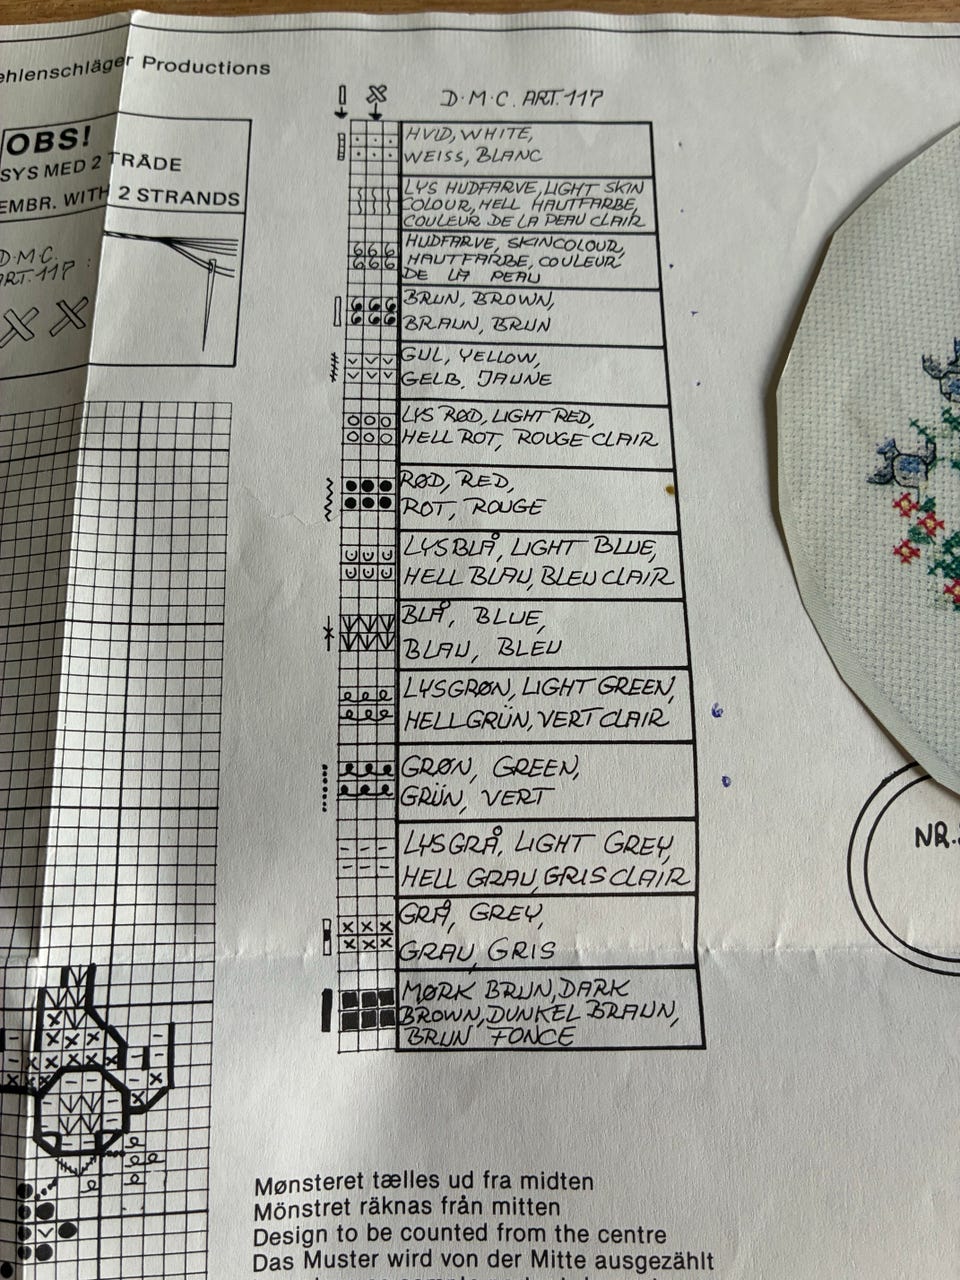 ehlenschläger Productions
OBS!
SYS MED 2 TRÅDE
EMBR. WITH 2 STRANDS
D·M·C.
ART. 117 :
D·M·C. ART. 117
HVID, WHITE,
WEISS, BLANC
LYS HUDFARVE, LIGHT SKIN
COLOUR, HELL HAUTFARBE,
COULEUR DE LA PEAU CLAIR
HUDFARVE, SKINCOLOUR,
HAUTFARBE, COULEUR
DE LA PEAU
BRUN, BROWN,
BRAUN, BRUN
GUL, YELLOW,
GELB, JAUNE
LYS RØD, LIGHT RED,
HELL ROT, ROUGE CLAIR
RØD, RED,
ROT, ROUGE
LYSBLÅ, LIGHT BLUE,
HELL BLAU, BLEU CLAIR
BLÅ, BLUE,
BLAU, BLEU
LYSGRØN, LIGHT GREEN,
HELLGRÜN, VERT CLAIR
GRØN, GREEN,
GRÜN, VERT
LYSGRÅ, LIGHT GREY,
HELL GRAU, GRIS CLAIR
GRÅ, GREY,
GRAU, GRIS
MØRK BRUN, DARK
BROWN, DUNKEL BRAUN,
BRUN FONCE
NR.
Mønsteret tælles ud fra midten
Mönstret räknas från mitten
Design to be counted from the centre
Das Muster wird von der Mitte ausgezählt